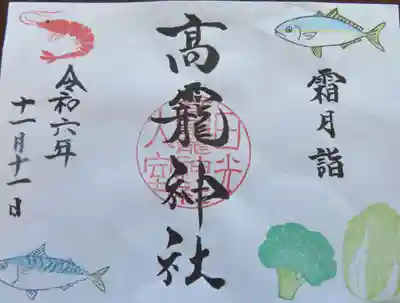 霜月詣
高龗神社
日光
大室
令和六年
十一月十一日